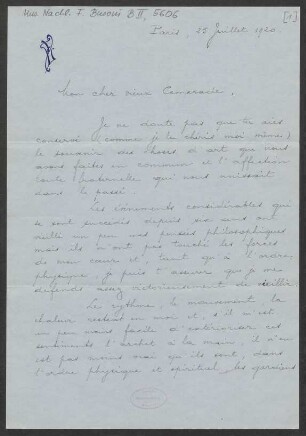 Mus. Nachl. F. Busoni B II, 5606
[1]
Paris, 25 Juillet 1920
Mon cher vieux Camarade,
Je ne doute pas que tu aies
conservé (comme je le chéris moi-même)
le souvenir des choses d'art que nous
avons faites en commun et l'affection
toute fraternelle qui nous unissait
dans le passé.
Les évènements considérables qui
se sont succédés depuis six ans ont
mûri un peu nos pensées philosophiques
mais ils n'ont pas touché les forces
de mon cœur et, tant qu'à l'ordre
physique, je puis t'assurer que je me
défends assez victorieusement de vieillir.
Le rythme, le mouvement, la
chaleur restent en moi et, s'il m'est
un peu moins facile d'extérioriser ces
sentiments l'archet à la main, il n'en
est pas moins vrai qu'ils sont, dans
l'ordre physique et spirituel, les garanties